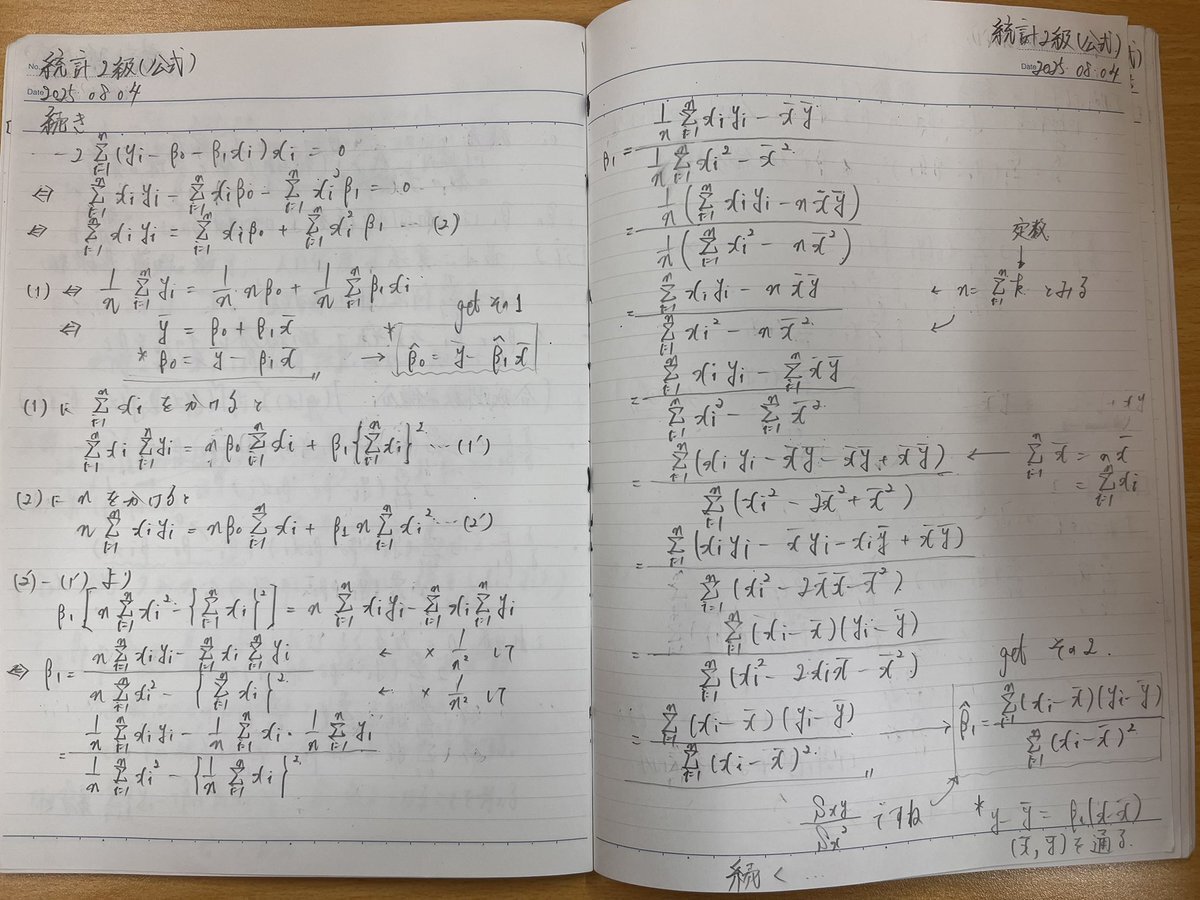 No. 統計2級(公式)
Date 2025 08 04
続き
-2 Σ_{i=1}^{n} (y_i - β_0 - β_1 x_i) x_i = 0
⇔ Σ_{i=1}^{n} x_i y_i - Σ_{i=1}^{n} x_i β_0 - Σ_{i=1}^{n} x_i^2 β_1 = 0
⇔ Σ_{i=1}^{n} x_i y_i = Σ_{i=1}^{n} x_i β_0 + Σ_{i=1}^{n} x_i^2 β_1 … (2)
(1) ⇔ 1/n Σ_{i=1}^{n} y_i = 1/n・nβ_0 + 1/n Σ_{i=1}^{n} β_1 x_i
⇔ ȳ = β_0 + β_1 x̄
get その1
* β_0 = ȳ - β_1 x̄ → * β̂_0 = ȳ - β̂_1 x̄
(1)に Σ_{i=1}^{n} x_i をかけると
Σ_{i=1}^{n} x_i Σ_{i=1}^{n} y_i = nβ_0 Σ_{i=1}^{n} x_i + β_1 {Σ_{i=1}^{n} x_i}^2 … (1')
(2)に n をかけると
n Σ_{i=1}^{n} x_i y_i = nβ_0 Σ_{i=1}^{n} x_i + β_1 n Σ_{i=1}^{n} x_i^2 … (2')
(2') - (1') より
β_1 [n Σ_{i=1}^{n} x_i^2 - {Σ_{i=1}^{n} x_i}^2] = n Σ_{i=1}^{n} x_i y_i - Σ_{i=1}^{n} x_i Σ_{i=1}^{n} y_i
⇔ β_1 = n Σ_{i=1}^{n} x_i y_i - Σ_{i=1}^{n} x_i Σ_{i=1}^{n} y_i ← × 1/n^2 して
n Σ_{i=1}^{n} x_i^2 - {Σ_{i=1}^{n} x_i}^2 ← × 1/n^2 して
= 1/n Σ_{i=1}^{n} x_i y_i - 1/n Σ_{i=1}^{n} x_i・1/n Σ_{i=1}^{n} y_i
1/n Σ_{i=1}^{n} x_i^2 - {1/n Σ_{i=1}^{n} x_i}^2
統計2級(公式)
Date 2025 08 04
β_1 = 1/n Σ_{i=1}^{n} x_i y_i - x̄ȳ
1/n Σ_{i=1}^{n} x_i^2 - x̄^2
= 1/n (Σ_{i=1}^{n} x_i y_i - n x̄ȳ)
1/n (Σ_{i=1}^{n} x_i^2 - n x̄^2)
定数
↓
= Σ_{i=1}^{n} x_i y_i - n x̄ȳ ← n = Σ_{i=1}^{n} k とみる
Σ_{i=1}^{n} x_i^2 - n x̄^2 ↙
= Σ_{i=1}^{n} x_i y_i - Σ_{i=1}^{n} x̄ȳ
Σ_{i=1}^{n} x_i^2 - Σ_{i=1}^{n} x̄^2
= Σ_{i=1}^{n} (x_i y_i - x̄ȳ - x̄ȳ + x̄ȳ) ← Σ_{i=1}^{n} x̄ = n x̄
= Σ_{i=1}^{n} x_i
Σ_{i=1}^{n} (x_i^2 - 2x̄^2 + x̄^2)
= Σ_{i=1}^{n} (x_i y_i - x̄ y_i - x_i ȳ + x̄ȳ)
Σ_{i=1}^{n} (x_i^2 - 2x̄x̄ - x̄^2)
= Σ_{i=1}^{n} (x_i - x̄)(y_i - ȳ)
Σ_{i=1}^{n} (x_i^2 - 2x_i x̄ - x̄^2)
get その2.
= Σ_{i=1}^{n} (x_i - x̄)(y_i - ȳ) → β̂_1 = Σ_{i=1}^{n} (x_i - x̄)(y_i - ȳ)
Σ_{i=1}^{n} (x_i - x̄)^2 Σ_{i=1}^{n} (x_i - x̄)^2
Sxy / Sx^2 ですね ↗
* y - ȳ = β_1(x - x̄)
(x̄, ȳ)を通る.
続く …